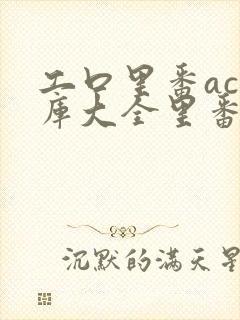 工口里番ac
库大全里番
沉默的满天星